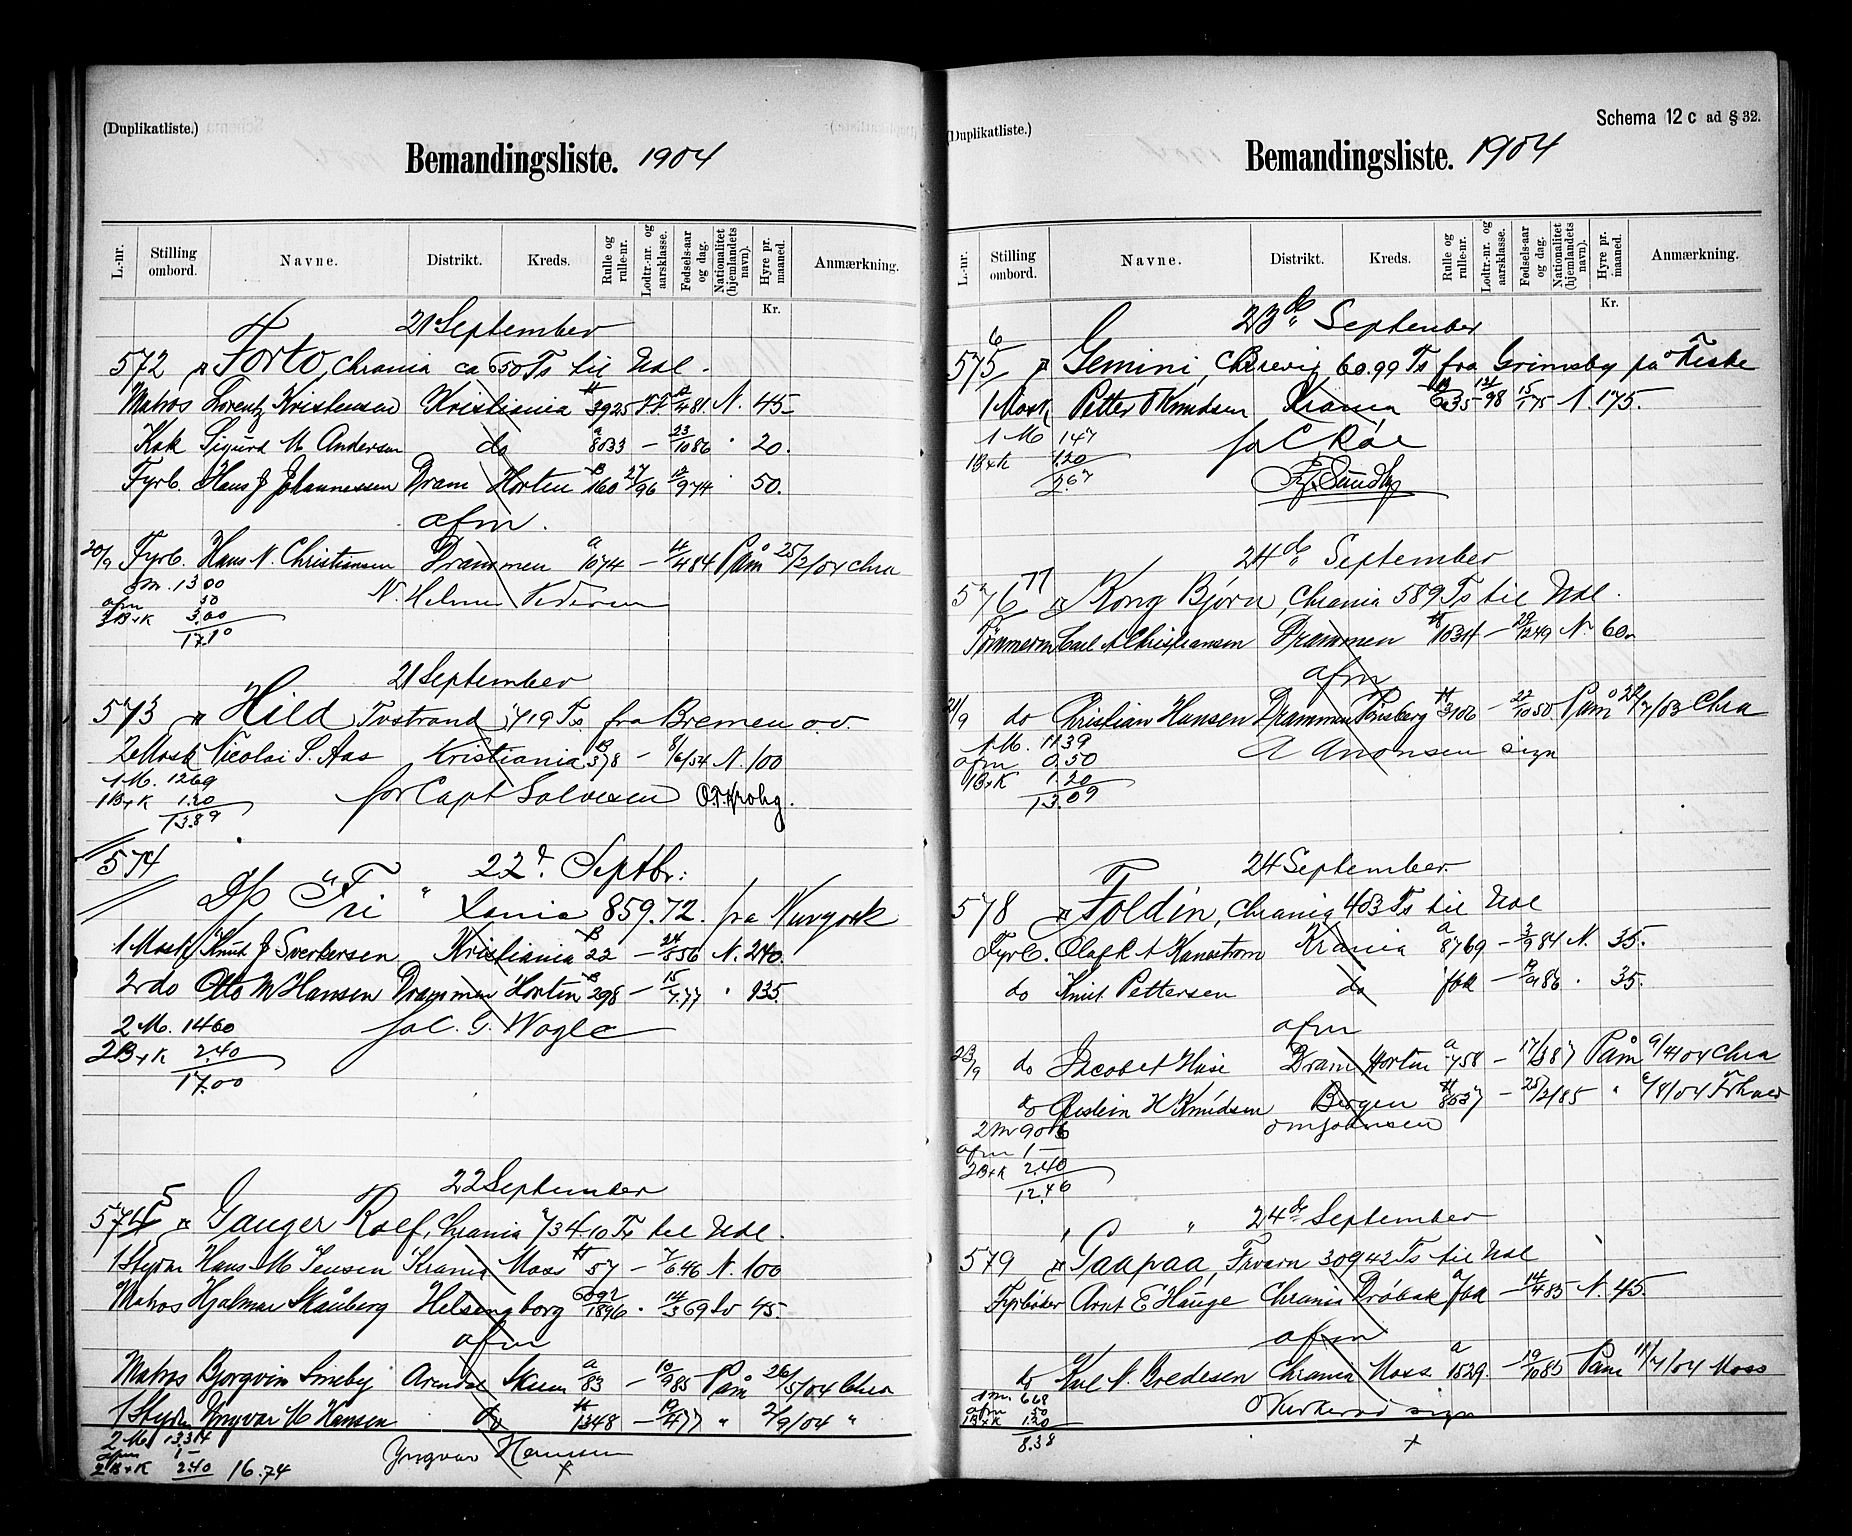 (Duplikatliste.)
Bemandingsliste. 1904
L.-nr. Stilling ombord. Navne. Distrikt. Kreds. Rulle og rulle-nr. Lodtr.-nr. og aarsklasse. Fødsels-aar og dag. Nationalitet (hjemlandets navn). Hyre pr. maaned. Anmærkning.
Kr.
21 September
572 Torto, Chrania ca 650 Ts til Udl.
Matros Lorentz Kristensen Kristiania 3925 N. 45
Kok Sigurd M Andersen do 8033 – 23/10 86 20.
Fyrb. Hans J Johannessen Dram Horten 160 27/96 12/9 74 50.
afm.
20/9 Fyrb. Hans N. Christiansen Drammen a 1074 – 4/4 84 Påm 25/2/04 Chra
1 M. 13 00
afm 50
N. Helmer Pedersen
3 B+K 3.00
17.10
21 September
573 Hild Tvstrand 719 Ts fra Bremen o.v.
2 Mask Nicolai S. Aas Kristiania 378 – 8/6/54 N. 100
1 M. 1269
1 B+K 1.20 for Capt Salvesen O.T. Krohg.
13.89
574
22d Septbr:
D/s "Fri" Xania 859.72. fra Newyork
1 Mask Knut J Sverdersen Kristiania 22 – 24/8 56 N. 240.
2 do Otto M Hansen Drammen Horten 298 – 15/7.77 " 135.
2 M. 1460 for C. G. Wogle
2 B+K 2.40
17.00
22 September
575 Ganger Rolf, Chrania 734.10 Ts til Udl.
1 Styrm Hans M Jensen Krania Moss 57 – 7/6 46 N. 100
Matros Hjalmar Skåberg Helsingborg 6092/1896 · 12/3 69 Sv 45.
afm
Matros Bjorgvin Smeby Arendal Skien a 83 – 10/9 85 Påm 26/5/04 Chra
1 Styrm Yngvar M Hansen do 1348 – 19/4 77 " 2/9/04 "
2 M. 13.34
afm 1–
2 B+K 2.40 16.74 Yngvar Hansen
(Duplikatliste.)
Schema 12 c ad § 32.
Bemandingsliste. 1904
L.-nr. Stilling ombord. Navne. Distrikt. Kreds. Rulle og rulle-nr. Lodtr.-nr. og aarsklasse. Fødsels-aar og dag. Nationalitet (hjemlandets navn). Hyre pr. maaned. Anmærkning.
Kr.
23de September
576 Gemini, Brevig 60.99 Ts fra Grimsby på Fiske
1 Mask Petter O Knudsen Krania 635 98 15/1 75 N. 175.
1 M 147 for C Röe
1 B+K 1.20
2.67 Fr. Sundby
24de September
577 Kong Bjørn, Chrania 589 Ts til Udl.
Tømmerm Carl A Christiansen Drammen 1034 – 29/12 49 N. 60
afm
21/9 do Christian Hansen Drammen Tønsberg 3106 – 22/10 50 Påm 24/7/03 Chra
1 M. 11.39 A Anonsen sign
afm 0.50
1 B+K 1.20
13.09
24 September
578 Foldin, Chrania 403 Ts til Udl
Fyrb. Olaf A Kanstrom Krania a 8769 – 3/9 84 N. 35.
do Knut Pettersen do fok – 86 · 35.
afm
23/9 do Jacob A Huse Dram Horten a 758 – 17/3 87 Påm 9/4/04 Chra
do Øistein H Knudsen Bergen 8037 – 25/2/85 " 6/8/04
2 M 906 Om Johnsen
afm 1–
2 B+K 2.40
12.46
24de September
579 Gaapaa, Frværn 309.42 Ts til Udl
Fyrbøder Arnt E Hauge Chrania Drøbak fok – 14/4 85 N. 45.
afm
do Karl N. Bredesen Chrania Moss a 1529. – 19/10 85 Påm 11/7/04 Moss
1 M. 668
afm 50 O Kirkerød sign
1 B+K 1.20
8.38